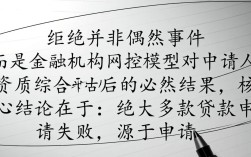 拒绝并非偶然事件
而是金融机构网控模型对申请人
资质综合评估后的必然结果，核
心结论在于：绝大多款贷款申
请失败，源于申请